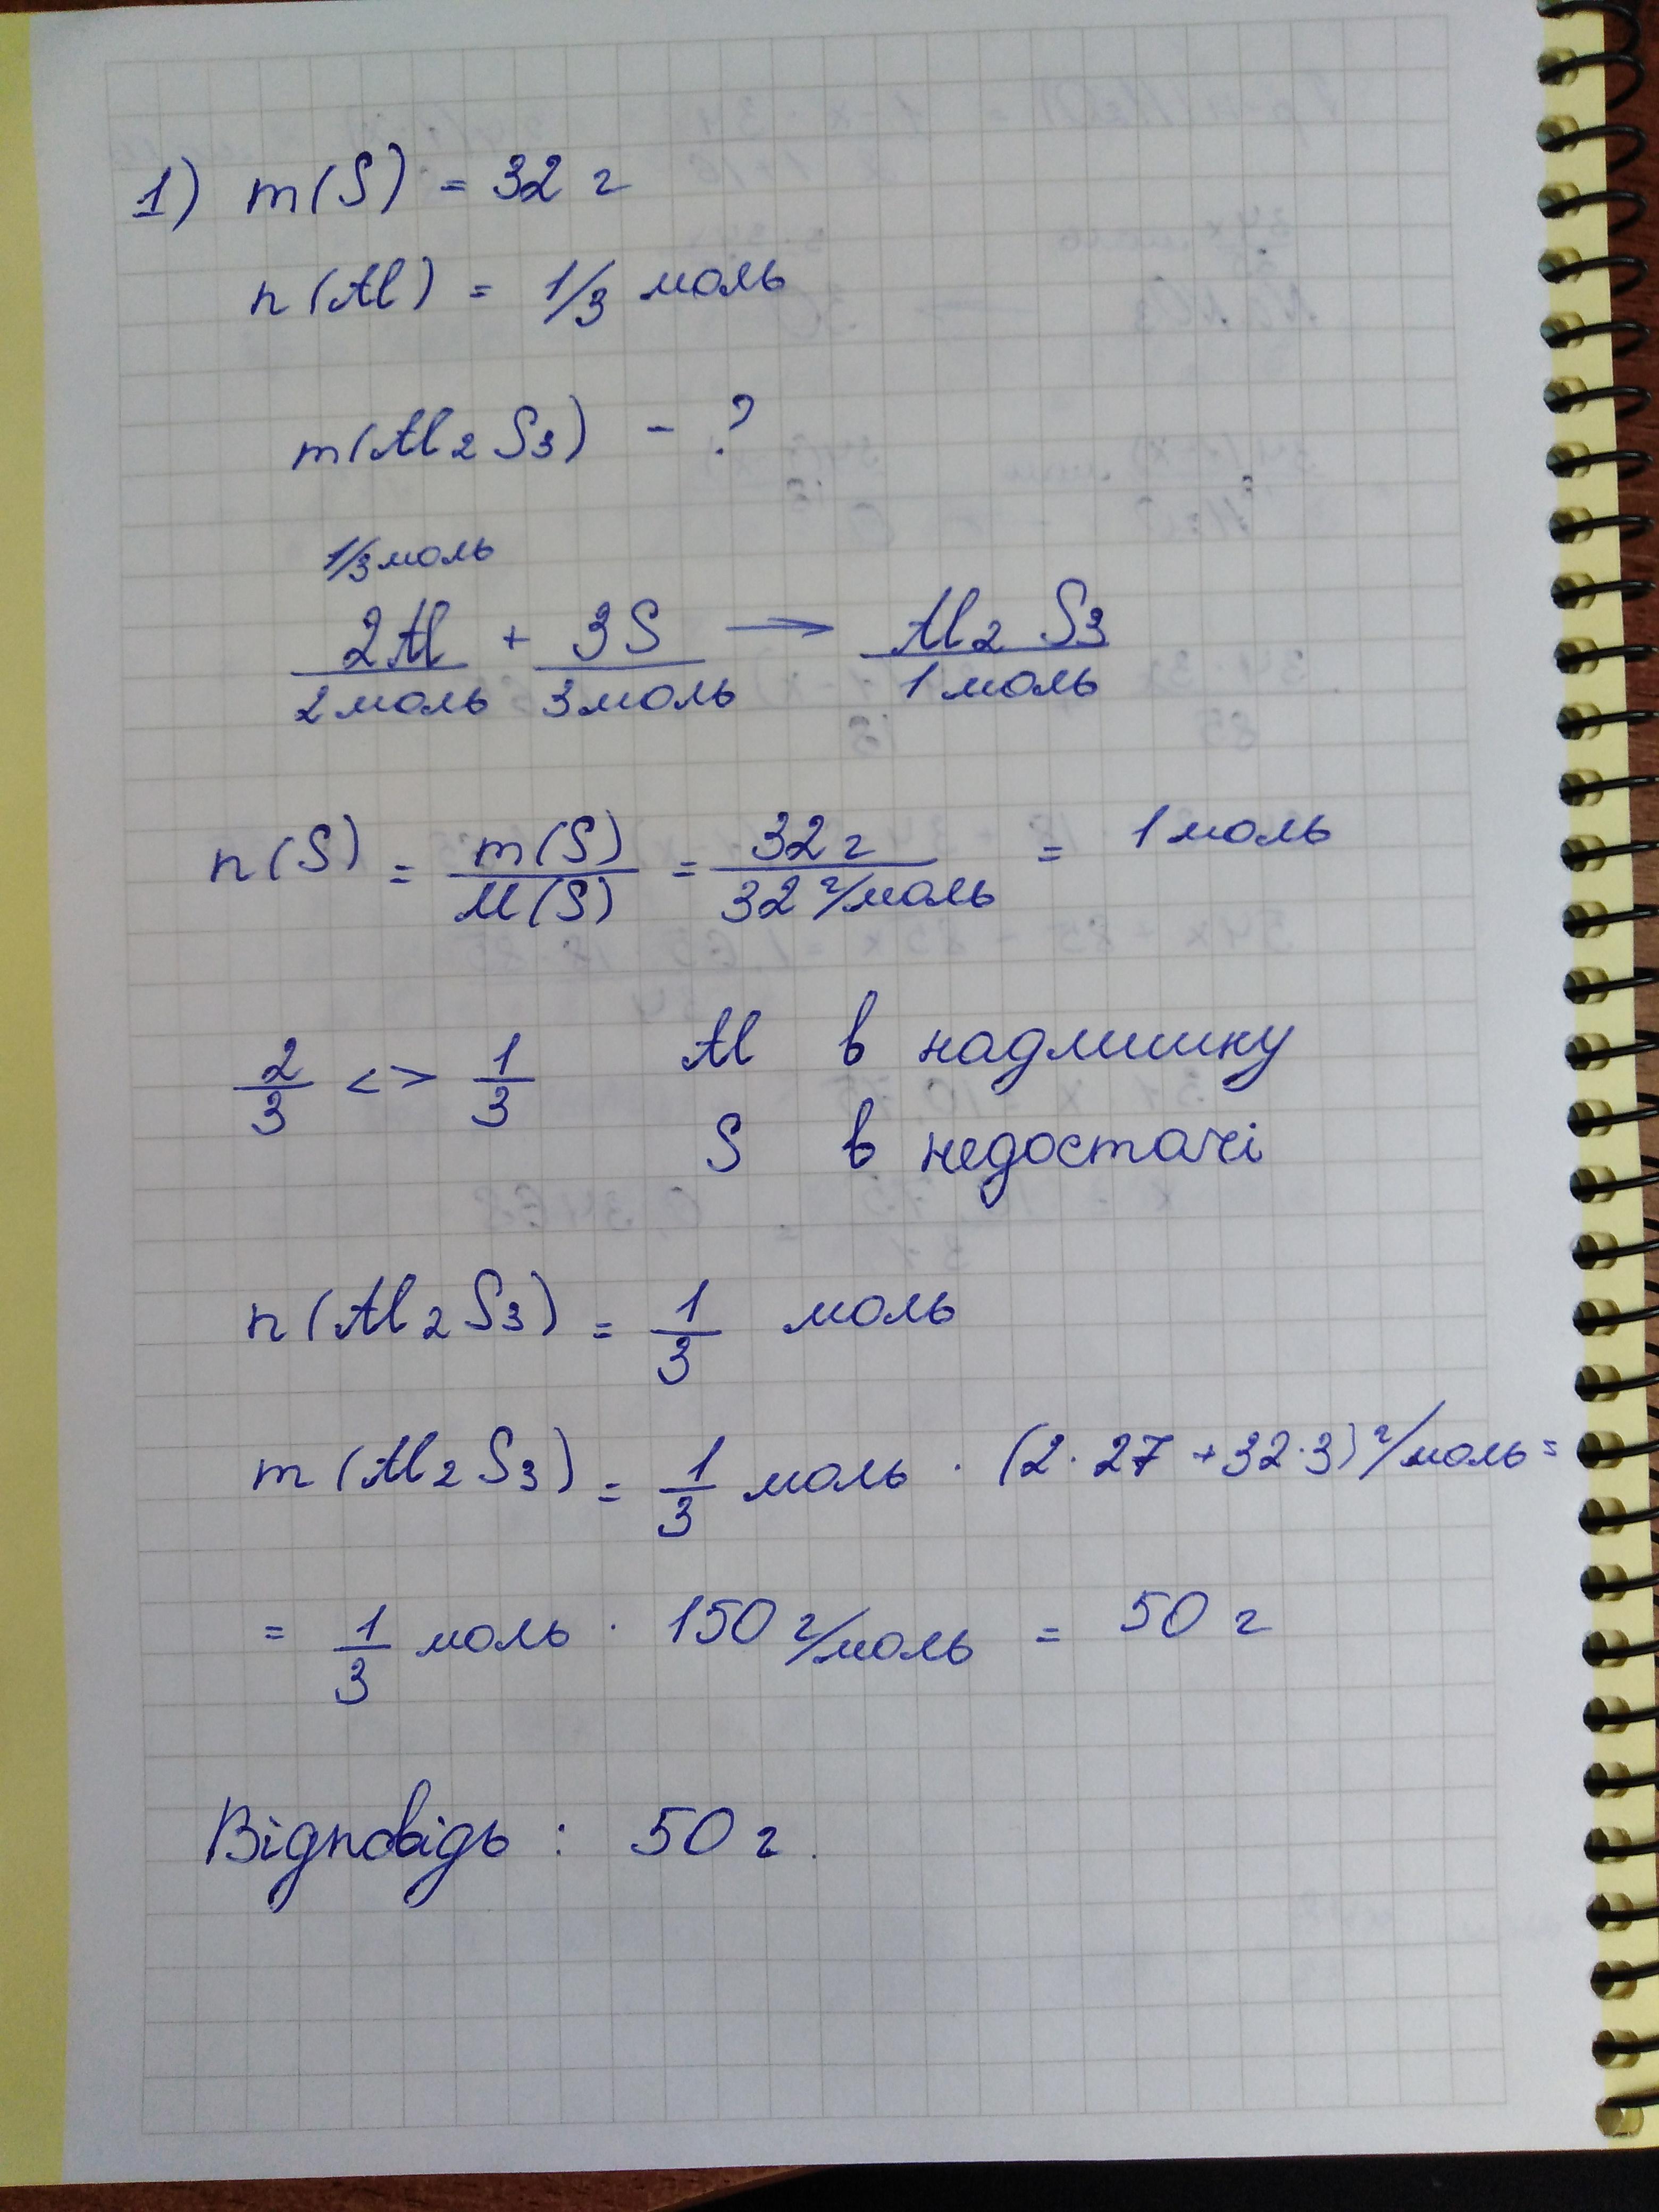 1) m(S) = 32 г
n(Al) = 1/3 моль
m(Al2S3) - ?
1/3 моль
2Al + 3S → Al2S3
2 моль 3 моль 1 моль
n(S) = m(S)/M(S) = 32 г/32 г/моль = 1 моль
2/3 <> 1/3 Al в надлишку
S в недостачі
n(Al2S3) = 1/3 моль
m(Al2S3) = 1/3 моль · (2·27+32·3) г/моль =
= 1/3 моль · 150 г/моль = 50 г
Відповідь: 50 г.